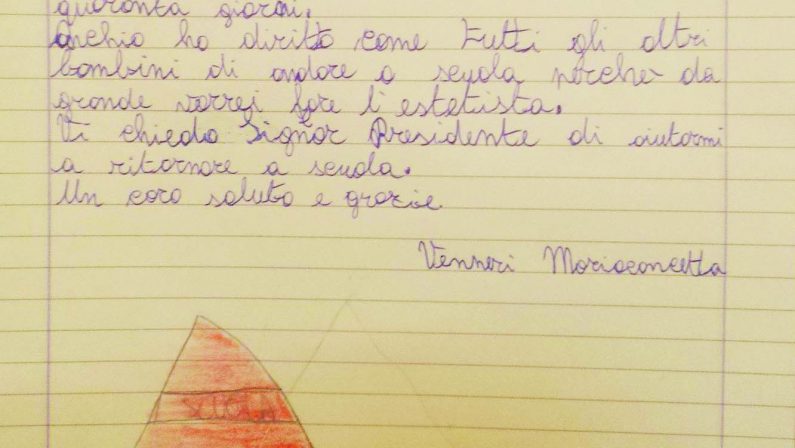 quaranta giorni.
Anchio ho diritto come tutti gli altri
bambini di andare a scuola perchè da
grande vorrei fare l'estetista.
Vi chiedo Signor Presidente di aiutarmi
a ritornare a scuola.
Un caro saluto e grazie
Venneri Mariaconcetta
SCUOLA